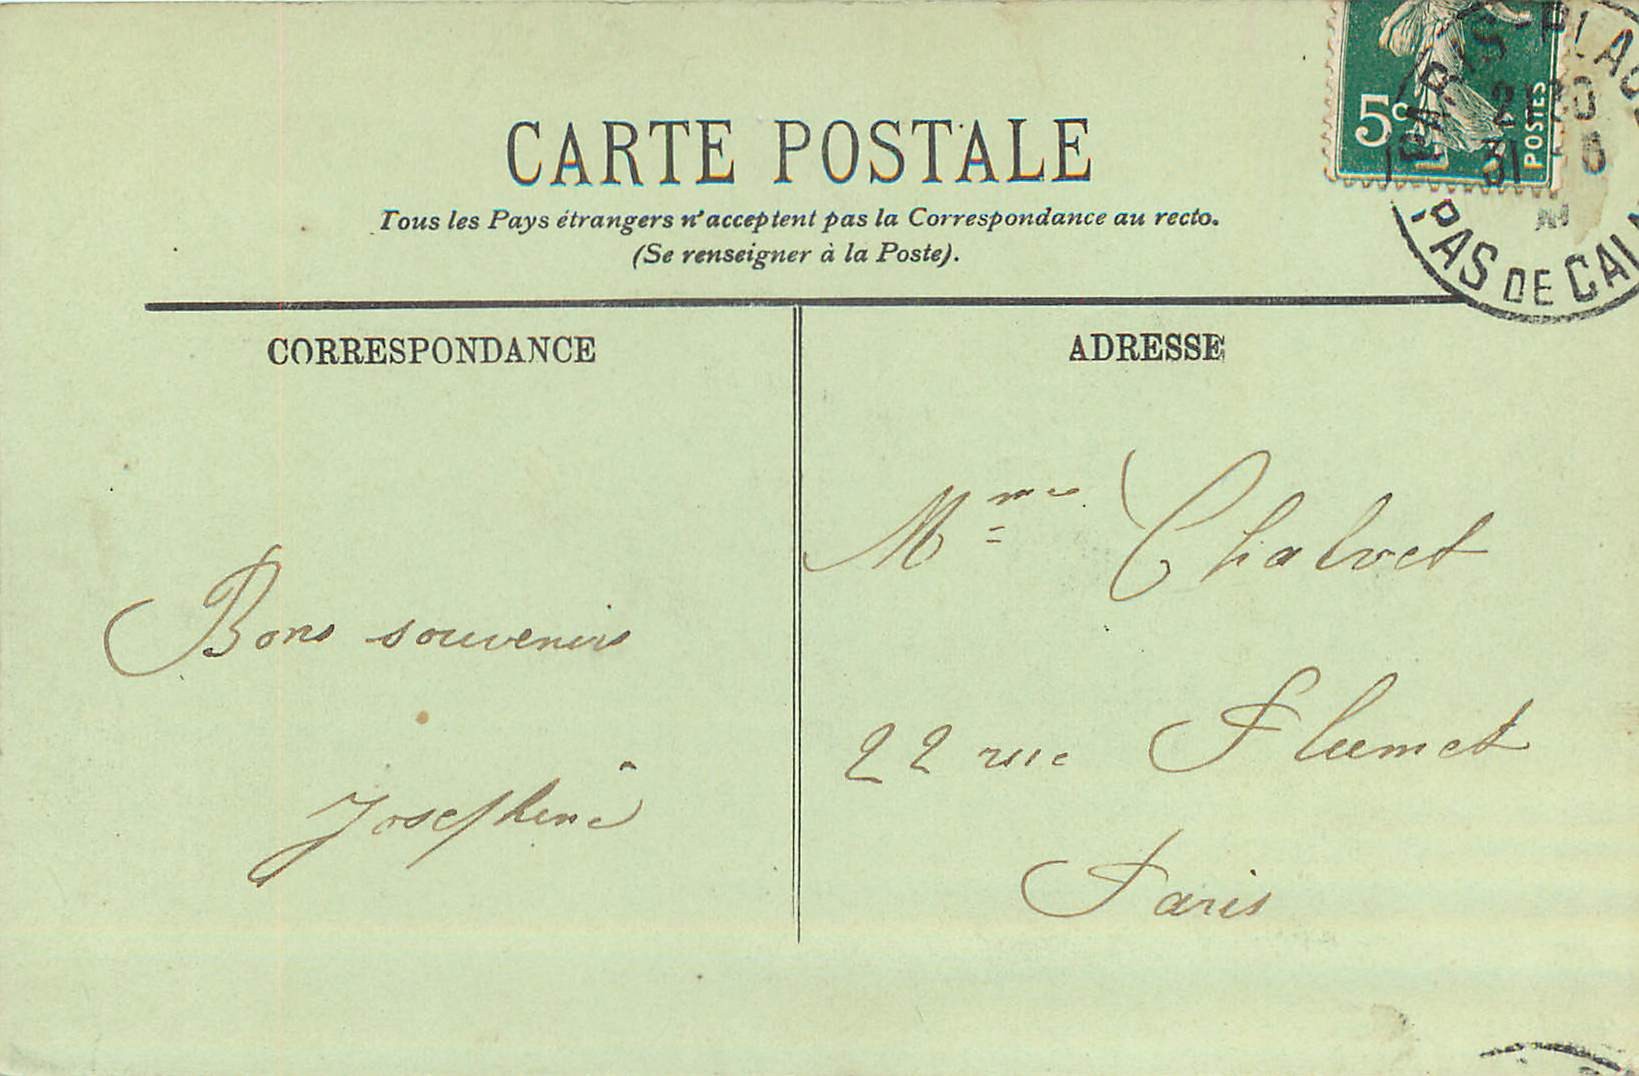 CARTE POSTALE
Tous les Pays étrangers n'acceptent pas la Correspondance au recto.
(Se renseigner à la Poste).
5c
POSTES
PARIS-PLAGE
PAS DE CALAIS
CORRESPONDANCE
ADRESSE
Mme Chalvet
22 rue Flumet
Paris
Bons souvenirs
Josephine